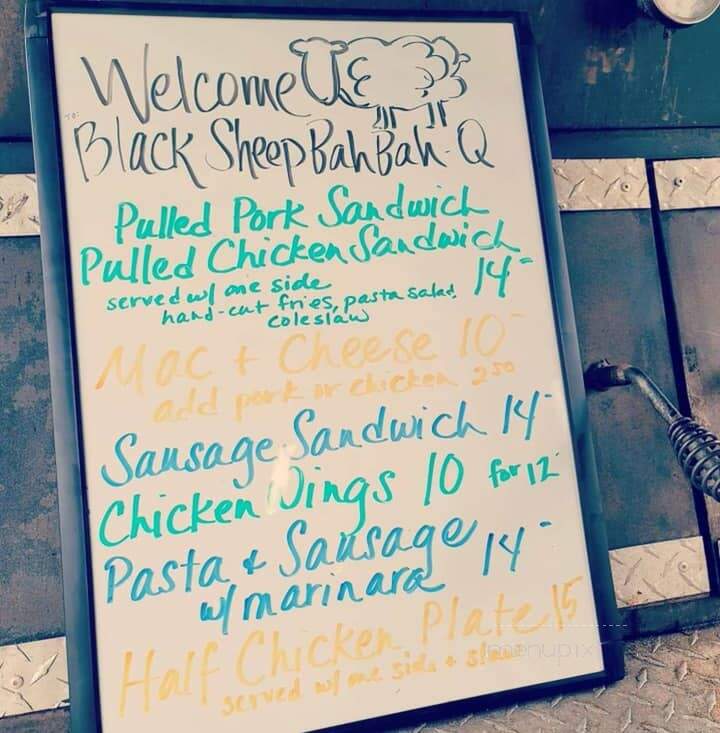 Welcome
TO:
Black Sheep Bah Bah-Q
Pulled Pork Sandwich
Pulled Chicken Sandwich
served w/ one side 14-
hand-cut fries, pasta salad,
coleslaw
Mac + Cheese 10-
add pork or chicken 2.50
Sausage Sandwich 14-
Chicken Wings 10 for 12-
Pasta + Sausage 14-
w/ marinara
Half Chicken Plate 15
served w/ one side + slaw
menupix